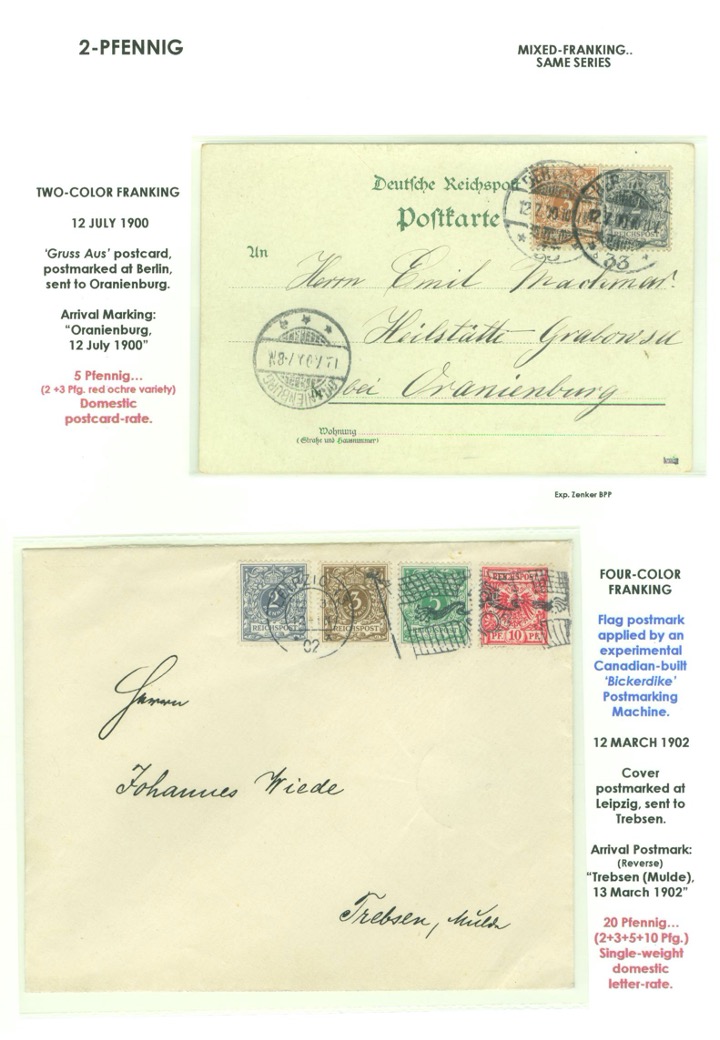 2-PFENNIG
MIXED-FRANKING..
SAME SERIES
TWO-COLOR FRANKING
12 JULY 1900
'Gruss Aus' postcard,
postmarked at Berlin,
sent to Oranienburg.
Arrival Marking:
"Oranienburg,
12 July 1900"
5 Pfennig...
(2 +3 Pfg. red ochre variety)
Domestic
postcard-rate.
Deutsche Reichspost
Postkarte
An
Herrn Emil
Heilstätte Grabowsee
bei Oranienburg
Wohnung
(Straße und Hausnummer)
BERLIN
12.7.00
33
REICHSPOST
ORANIENBURG
Exp. Zenker BPP
2
REICHSPOST
3
REICHSPOST
5
REICHSPOST
PF 10 PF
LEIPZIG
02
Herrn
Johannes Wiede
Trebsen, Mulde
FOUR-COLOR
FRANKING
Flag postmark
applied by an
experimental
Canadian-built
'Bickerdike'
Postmarking
Machine.
12 MARCH 1902
Cover
postmarked at
Leipzig, sent to
Trebsen.
Arrival Postmark:
(Reverse)
"Trebsen (Mulde),
13 March 1902"
20 Pfennig...
(2+3+5+10 Pfg.)
Single-weight
domestic
letter-rate.